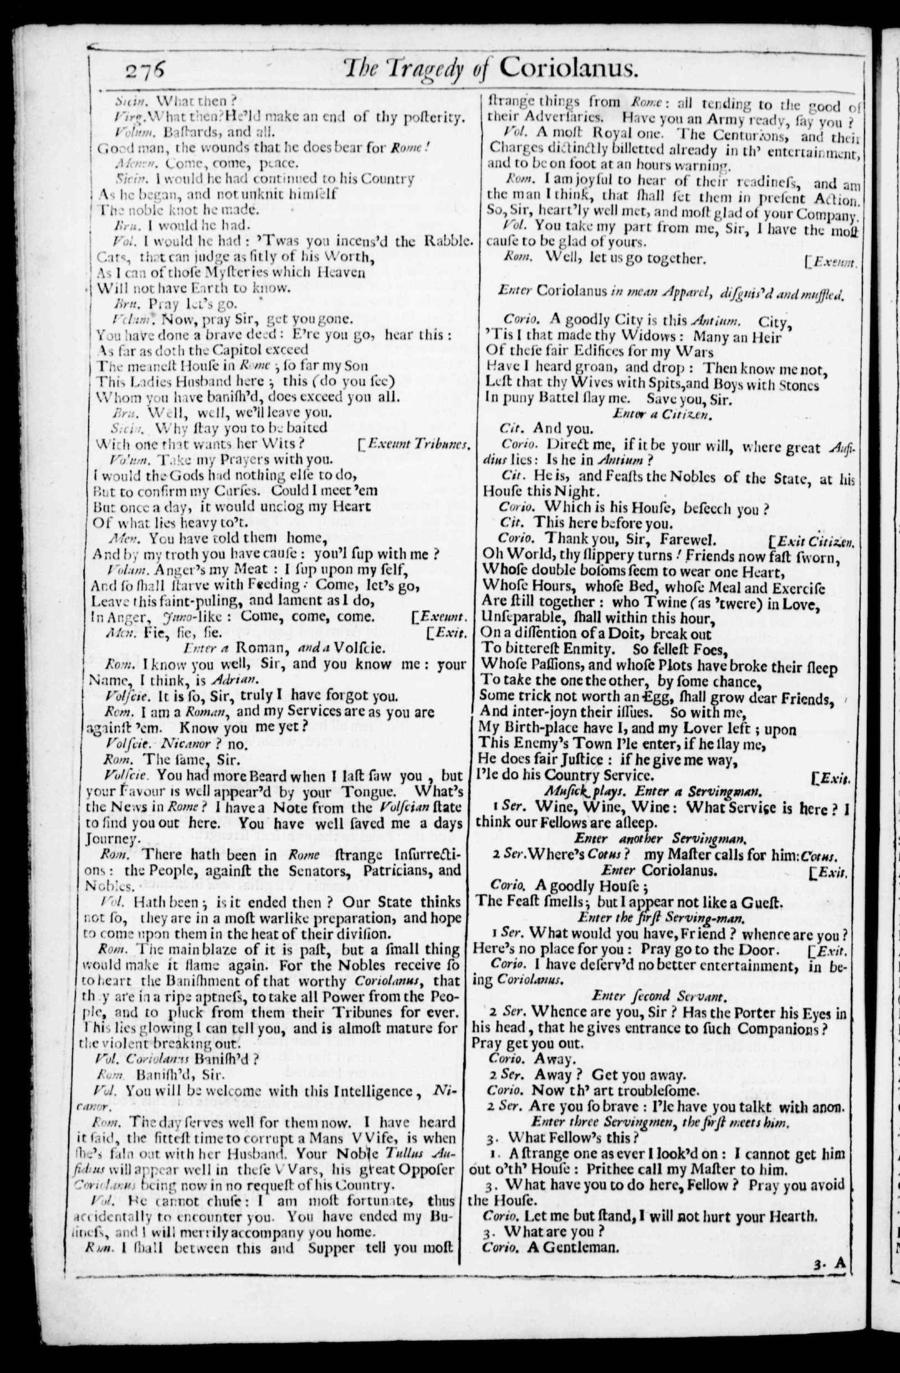 276
The Tragedy of Coriolanus.
Sicin. What then?
Virg. What then? He'ld make an end of thy poſterity.
Volum. Baſtards, and all.
Good man, the wounds that he does bear for Rome!
Menen. Come, come, peace.
Sicin. I would he had continued to his Country
As he began, and not unknit himſelf
The noble knot he made.
Bru. I would he had.
Vol. I would he had: 'Twas you incens'd the Rabble.
Cats, that can judge as fitly of his Worth,
As I can of thoſe Myſteries which Heaven
Will not have Earth to know.
Bru. Pray let's go.
Volum. Now, pray Sir, get you gone.
You have done a brave deed: E're you go, hear this:
As far as doth the Capitol exceed
The meaneſt Houſe in Rome; ſo far my Son
This Ladies Husband here; this (do you ſee)
Whom you have baniſh'd, does exceed you all.
Bru. Well, well, we'll leave you.
Sicin. Why ſtay you to be baited
With one that wants her Wits? [Exeunt Tribunes.
Volum. Take my Prayers with you.
I would the Gods had nothing elſe to do,
But to confirm my Curſes. Could I meet 'em
But once a day, it would unclog my Heart
Of what lies heavy to't.
Men. You have told them home,
And by my troth you have cauſe: you'l ſup with me?
Volum. Anger's my Meat: I ſup upon my ſelf,
And ſo ſhall ſtarve with Feeding: Come, let's go,
Leave this faint-puling, and lament as I do,
In Anger, Juno-like: Come, come, come. [Exeunt.
Men. Fie, fie, fie. [Exit.
Enter a Roman, and a Volſcie.
Rom. I know you well, Sir, and you know me: your
Name, I think, is Adrian.
Volſcie. It is ſo, Sir, truly I have forgot you.
Rom. I am a Roman, and my Services are as you are
againſt 'em. Know you me yet?
Volſcie. Nicanor? no.
Rom. The ſame, Sir.
Volſcie. You had more Beard when I laſt ſaw you, but
your Favour is well appear'd by your Tongue. What's
the News in Rome? I have a Note from the Volſcian ſtate
to find you out here. You have well ſaved me a days
Journey.
Rom. There hath been in Rome ſtrange Inſurrecti-
ons: the People, againſt the Senators, Patricians, and
Nobles.
Vol. Hath been; is it ended then? Our State thinks
not ſo, they are in a moſt warlike preparation, and hope
to come upon them in the heat of their diviſion.
Rom. The main blaze of it is paſt, but a ſmall thing
would make it flame again. For the Nobles receive ſo
to heart the Baniſhment of that worthy Coriolanus, that
they are in a ripe aptneſs, to take all Power from the Peo-
ple, and to pluck from them their Tribunes for ever.
This lies glowing I can tell you, and is almoſt mature for
the violent breaking out.
Vol. Coriolanus Baniſh'd?
Rom. Baniſh'd, Sir.
Vol. You will be welcome with this Intelligence, Ni-
canor.
Rom. The day ſerves well for them now. I have heard
it ſaid, the fitteſt time to corrupt a Mans VVife, is when
ſhe's faln out with her Husband. Your Noble Tullus Au-
fidius will appear well in theſe VVars, his great Oppoſer
Coriolanus being now in no requeſt of his Country.
Vol. He cannot chuſe: I am moſt fortunate, thus
accidentally to encounter you. You have ended my Bu-
ſineſs, and I will merrily accompany you home.
Rom. I ſhall between this and Supper tell you moſt
ſtrange things from Rome: all tending to the good of
their Adverſaries. Have you an Army ready, ſay you?
Vol. A moſt Royal one. The Centurions, and their
Charges diſtinctly billetted already in th' entertainment,
and to be on foot at an hours warning.
Rom. I am joyful to hear of their readineſs, and am
the man I think, that ſhall ſet them in preſent Action.
So, Sir, heart'ly well met, and moſt glad of your Company.
Vol. You take my part from me, Sir, I have the moſt
cauſe to be glad of yours.
Rom. Well, let us go together. [Exeunt.
Enter Coriolanus in mean Apparel, diſguis'd and muffled.
Corio. A goodly City is this Antium. City,
'Tis I that made thy Widows: Many an Heir
Of theſe fair Edifices for my Wars
Have I heard groan, and drop: Then know me not,
Leſt that thy Wives with Spits, and Boys with Stones
In puny Battel ſlay me. Save you, Sir.
Enter a Citizen.
Cit. And you.
Corio. Direct me, if it be your will, where great Aufi-
dius lies: Is he in Antium?
Cit. He is, and Feaſts the Nobles of the State, at his
Houſe this Night.
Corio. Which is his Houſe, beſeech you?
Cit. This here before you.
Corio. Thank you, Sir, Farewel. [Exit Citizen.
Oh World, thy ſlippery turns! Friends now faſt ſworn,
Whoſe double boſoms ſeem to wear one Heart,
Whoſe Hours, whoſe Bed, whoſe Meal and Exerciſe
Are ſtill together: who Twine (as 'twere) in Love,
Unſeparable, ſhall within this hour,
On a diſſention of a Doit, break out
To bittereſt Enmity. So felleſt Foes,
Whoſe Paſſions, and whoſe Plots have broke their ſleep
To take the one the other, by ſome chance,
Some trick not worth an Egg, ſhall grow dear Friends,
And inter-joyn their iſſues. So with me,
My Birth-place have I, and my Lover left; upon
This Enemy's Town I'le enter, if he ſlay me,
He does fair Juſtice: if he give me way,
I'le do his Country Service. [Exit.
Muſick plays. Enter a Servingman.
1 Ser. Wine, Wine, Wine: What Service is here? I
think our Fellows are aſleep.
Enter another Servingman.
2 Ser. Where's Cotus? my Maſter calls for him: Cotus.
Enter Coriolanus. [Exit.
Corio. A goodly Houſe;
The Feaſt ſmells; but I appear not like a Gueſt.
Enter the firſt Serving-man.
1 Ser. What would you have, Friend? whence are you?
Here's no place for you: Pray go to the Door. [Exit.
Corio. I have deſerv'd no better entertainment, in be-
ing Coriolanus.
Enter ſecond Servant.
2 Ser. Whence are you, Sir? Has the Porter his Eyes in
his head, that he gives entrance to ſuch Companions?
Pray get you out.
Corio. Away.
2 Ser. Away? Get you away.
Corio. Now th' art troubleſome.
2 Ser. Are you ſo brave: I'le have you talkt with anon.
Enter three Servingmen, the firſt meets him.
3. What Fellow's this?
1. A ſtrange one as ever I look'd on: I cannot get him
out o'th' Houſe: Prithee call my Maſter to him.
3. What have you to do here, Fellow? Pray you avoid
the Houſe.
Corio. Let me but ſtand, I will not hurt your Hearth.
3. What are you?
Corio. A Gentleman.
3. A